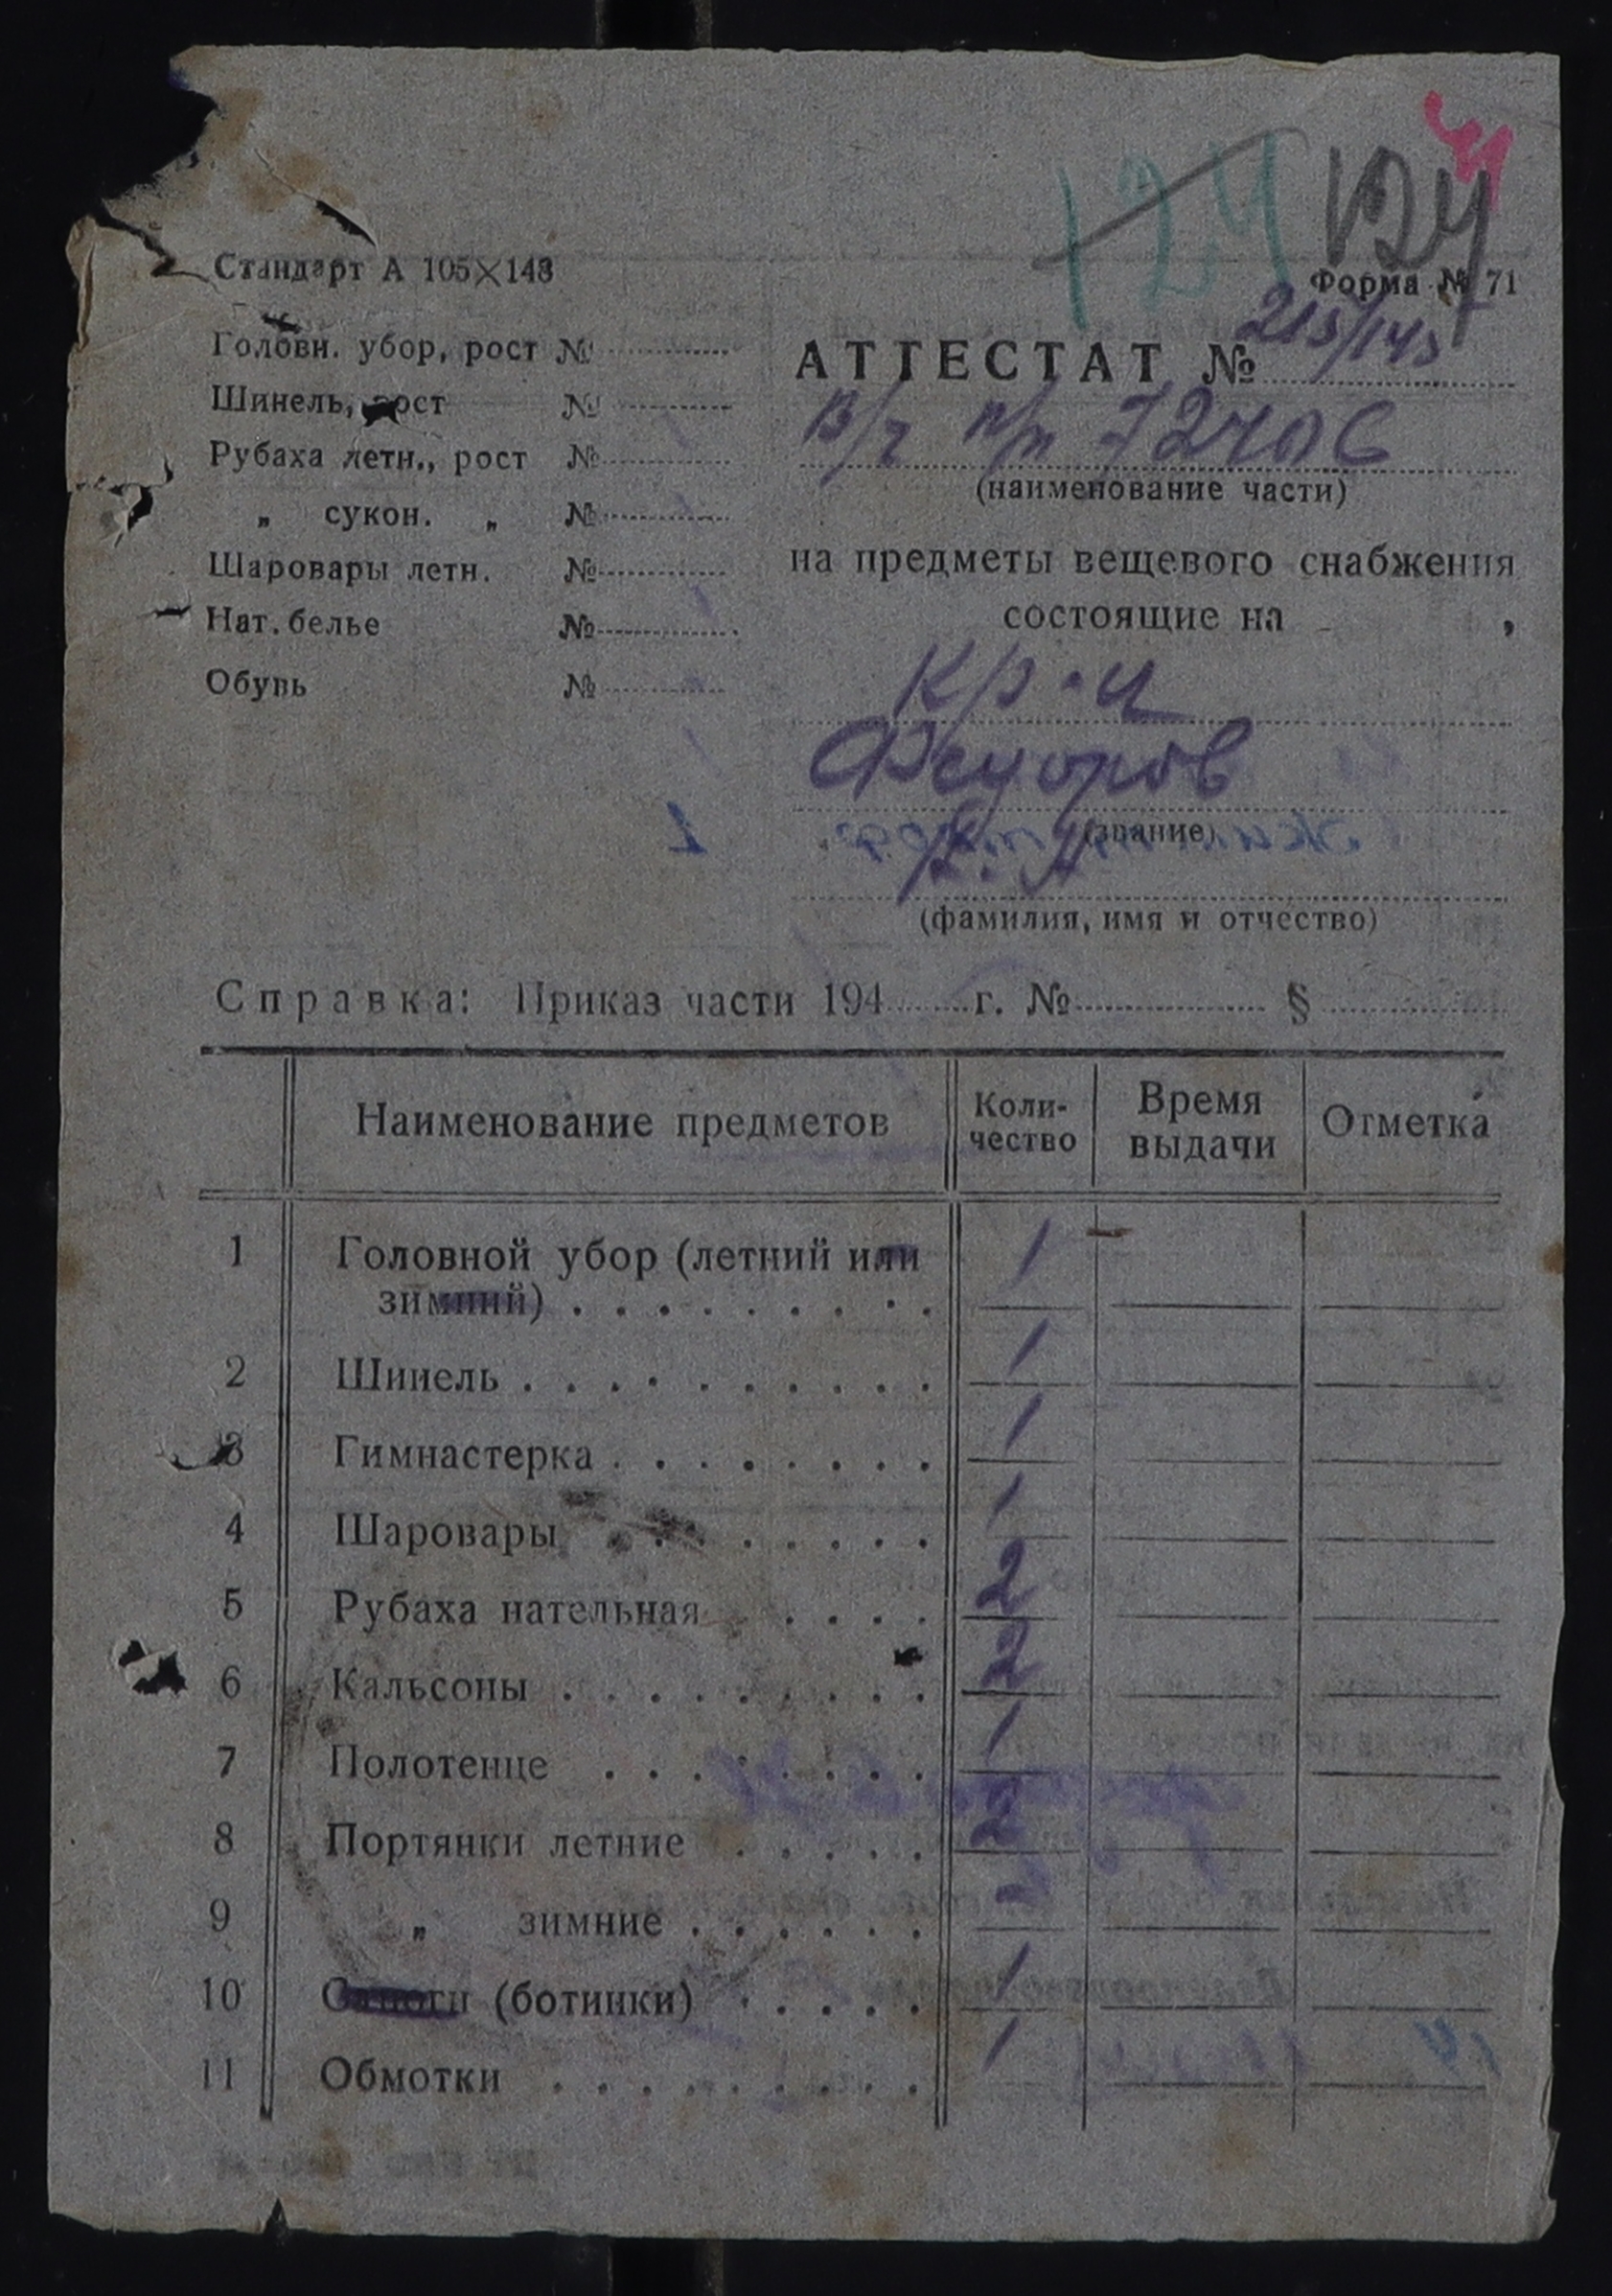 124 124
Стандарт А 105×148
Форма № 71
Головн. убор, рост №
Шинель, рост №
Рубаха летн., рост №
„ сукон. „ №
Шаровары летн. №
Нат. белье №
Обувь №
АТТЕСТАТ № 215/145
В/ч п/п 72406
(наименование части)
на предметы вещевого снабжения
состоящие на ,
кр-ц
Федоров
(звание)
(фамилия, имя и отчество)
Справка: Приказ части 194 г. № §
Наименование предметов Коли-чество Время выдачи Отметка
1 Головной убор (летний или 1
зимний)
2 Шинель 1
3 Гимнастерка 1
4 Шаровары 1
5 Рубаха нательная 2
6 Кальсоны 2
7 Полотенце 1
8 Портянки летние 2
9 „ зимние -
10 Сапоги (ботинки) 1
11 Обмотки 1